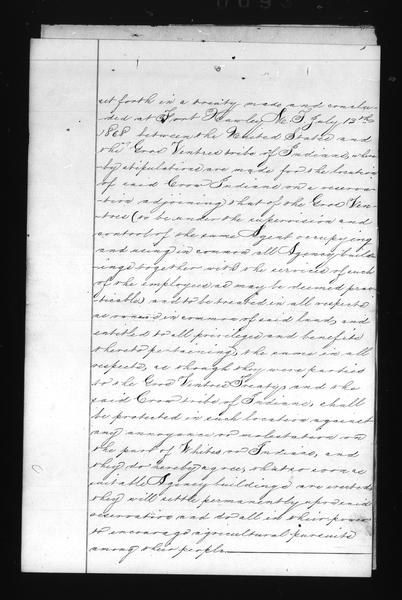 set forth in a treaty made and conclu-
ded at Fort Hawley M.T. July 13th
1868 between the United States and
the Gros Ventres tribe of Indians, where-
by stipulations are made for the location
of said Crow Indians on a reserva-
tion adjoining that of the Gros Ven-
tres (to be under the supervision and
control of the same Agent occupying
and using in common all Agency build-
ings together with the services of such
of the employees as may be deemed prac-
ticable) and to be treated in all respects
as owners in common of said land, and
entitled to all privileges and benefits
thereto pertaining, the same in all
respects, as though they were parties
to the Gros Ventres Treaty, and the
said Crow tribe of Indians, shall
be protected in such location against
any annoyance or molestation on
the part of Whites or Indians, and
they do hereby agree, that so soon as
suitable Agency buildings are erected
they will settle permanently upon said
reservation and do all in their power
to encourage agricultural pursuits
among their people